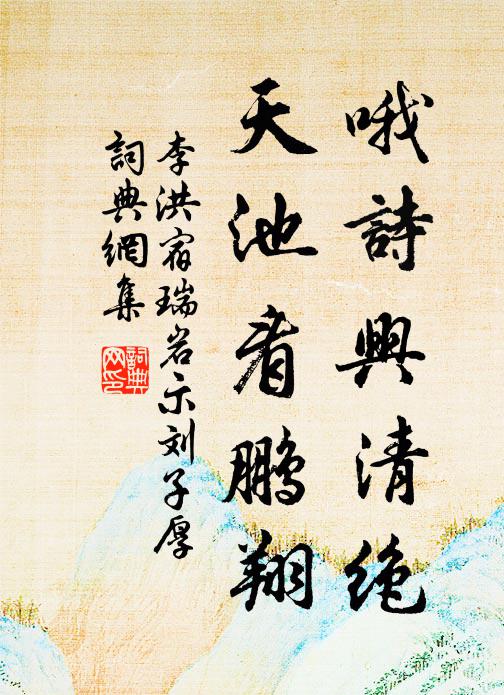 哦詩興清絶
天池看鵬翔
李洪宿瑞岩示刘子厚
詞典網集
詞典网印